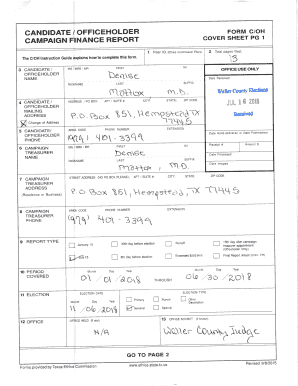 CANDIDATE / OFFICEHOLDER FORM C/OH
CAMPAIGN FINANCE REPORT COVER SHEET PG 1
The C/OH Instruction Guide explains how to complete this form.
1 Filer ID (Ethics Commission Filers)
2 Total pages filed:
13
3 CANDIDATE / OFFICEHOLDER NAME
MS / MRS / MR FIRST MI
Denise
NICKNAME LAST SUFFIX
Mattox M.D.
OFFICE USE ONLY
Date Received
Waller County Elections
JUL 16 2018
Received
4 CANDIDATE / OFFICEHOLDER MAILING ADDRESS
Change of Address
ADDRESS / PO BOX; APT / SUITE #; CITY; STATE; ZIP CODE
P.O. Box 851, Hempstead TX
77445
5 CANDIDATE / OFFICEHOLDER PHONE
AREA CODE PHONE NUMBER EXTENSION
(979) 401-3399
Date Hand-delivered or Date Postmarked
Receipt # Amount $
Date Processed
Date Imaged
6 CAMPAIGN TREASURER NAME
MS / MRS / MR FIRST MI
Denise
NICKNAME LAST SUFFIX
Mattox, M.D.
7 CAMPAIGN TREASURER ADDRESS
(Residence or Business)
STREET ADDRESS (NO PO BOX PLEASE); APT / SUITE #; CITY; STATE; ZIP CODE
P.O. Box 851, Hempstead TX 77445
8 CAMPAIGN TREASURER PHONE
AREA CODE PHONE NUMBER EXTENSION
(979) 401-3399
9 REPORT TYPE
January 15
30th day before election
Runoff
15th day after campaign treasurer appointment (Officeholder Only)
July 15
8th day before election
Exceeded $500 limit
Final Report (Attach C/OH - FR)
10 PERIOD COVERED
Month Day Year
01/01/2018 THROUGH 06/30/2018
11 ELECTION
ELECTION DATE
Month Day Year
11/06/2018
ELECTION TYPE
Primary
Runoff
Other Description
General
Special
12 OFFICE
OFFICE HELD (if any)
N/A
13 OFFICE SOUGHT (if known)
Waller County Judge
GO TO PAGE 2
Forms provided by Texas Ethics Commission www.ethics.state.tx.us Revised 9/8/2015